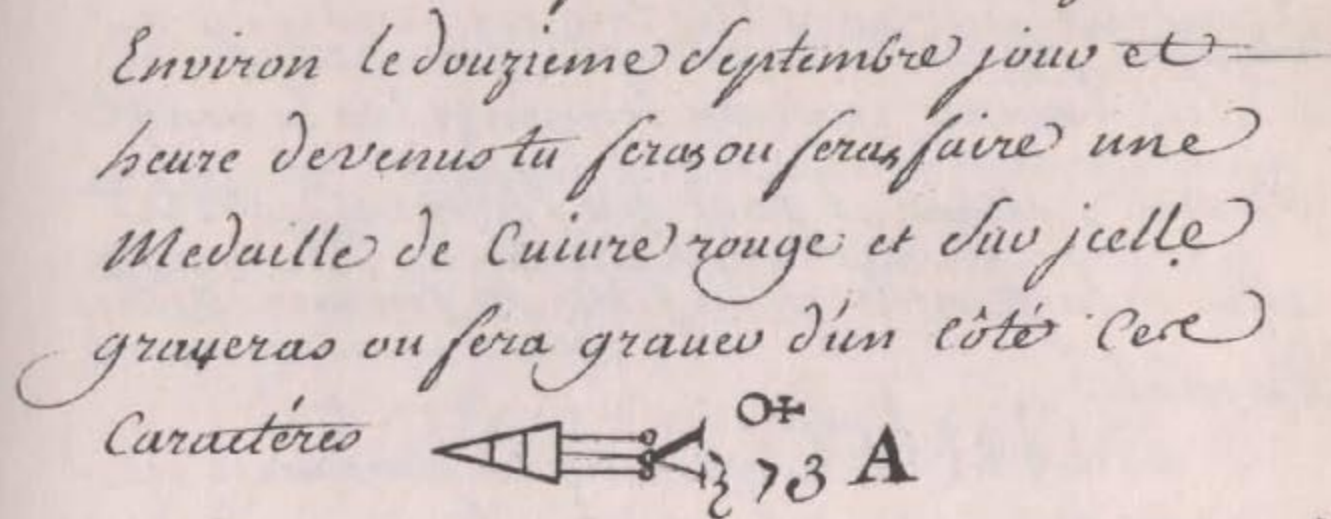 Environ le douzieme Septembre jour et
heure de venus tu feras ou feras faire une
Medaille de Cuiure rouge et Sur jcelle
graueras ou fera grauer d'un côté Ces
Caractéres 73 A